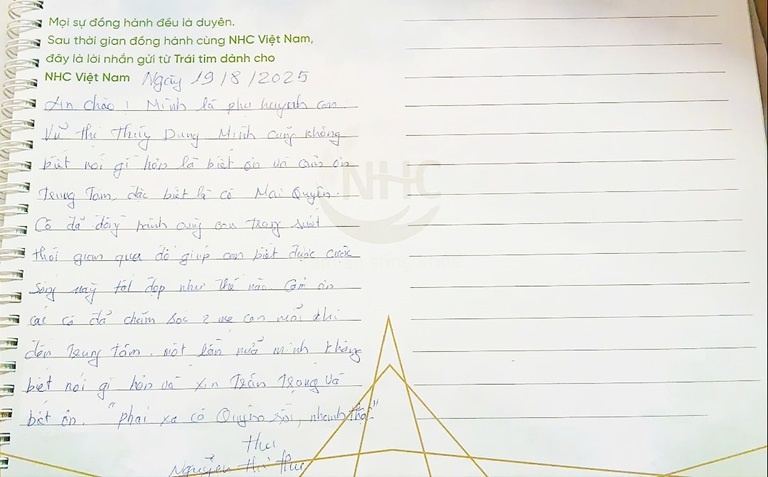 Mọi sự đồng hành đều là duyên.
Sau thời gian đồng hành cùng NHC Việt Nam,
đây là lời nhắn gửi từ Trái tim dành cho
NHC Việt Nam Ngày 19/8/2025
Xin chào! Mình là phụ huynh con
Vũ Thị Thùy Dung Mình cũng không
biết nói gì hơn là biết ơn và cảm ơn
Trung Tâm, đặc biệt là cô Mai Quyên.
Cô đã đồng hành cùng con trong suốt
thời gian qua đó giúp con biết được cuộc
sống này tốt đẹp như thế nào. Cảm ơn
các cô đã chăm sóc 2 mẹ con mỗi khi
đến Trung tâm. một lần nữa mình không
biết nói gì hơn và xin Trân Trọng và
biết ơn. "phải xa cô Quyên rồi, nhanh thật"
thu
Nguyễn Thị Thu
NHC